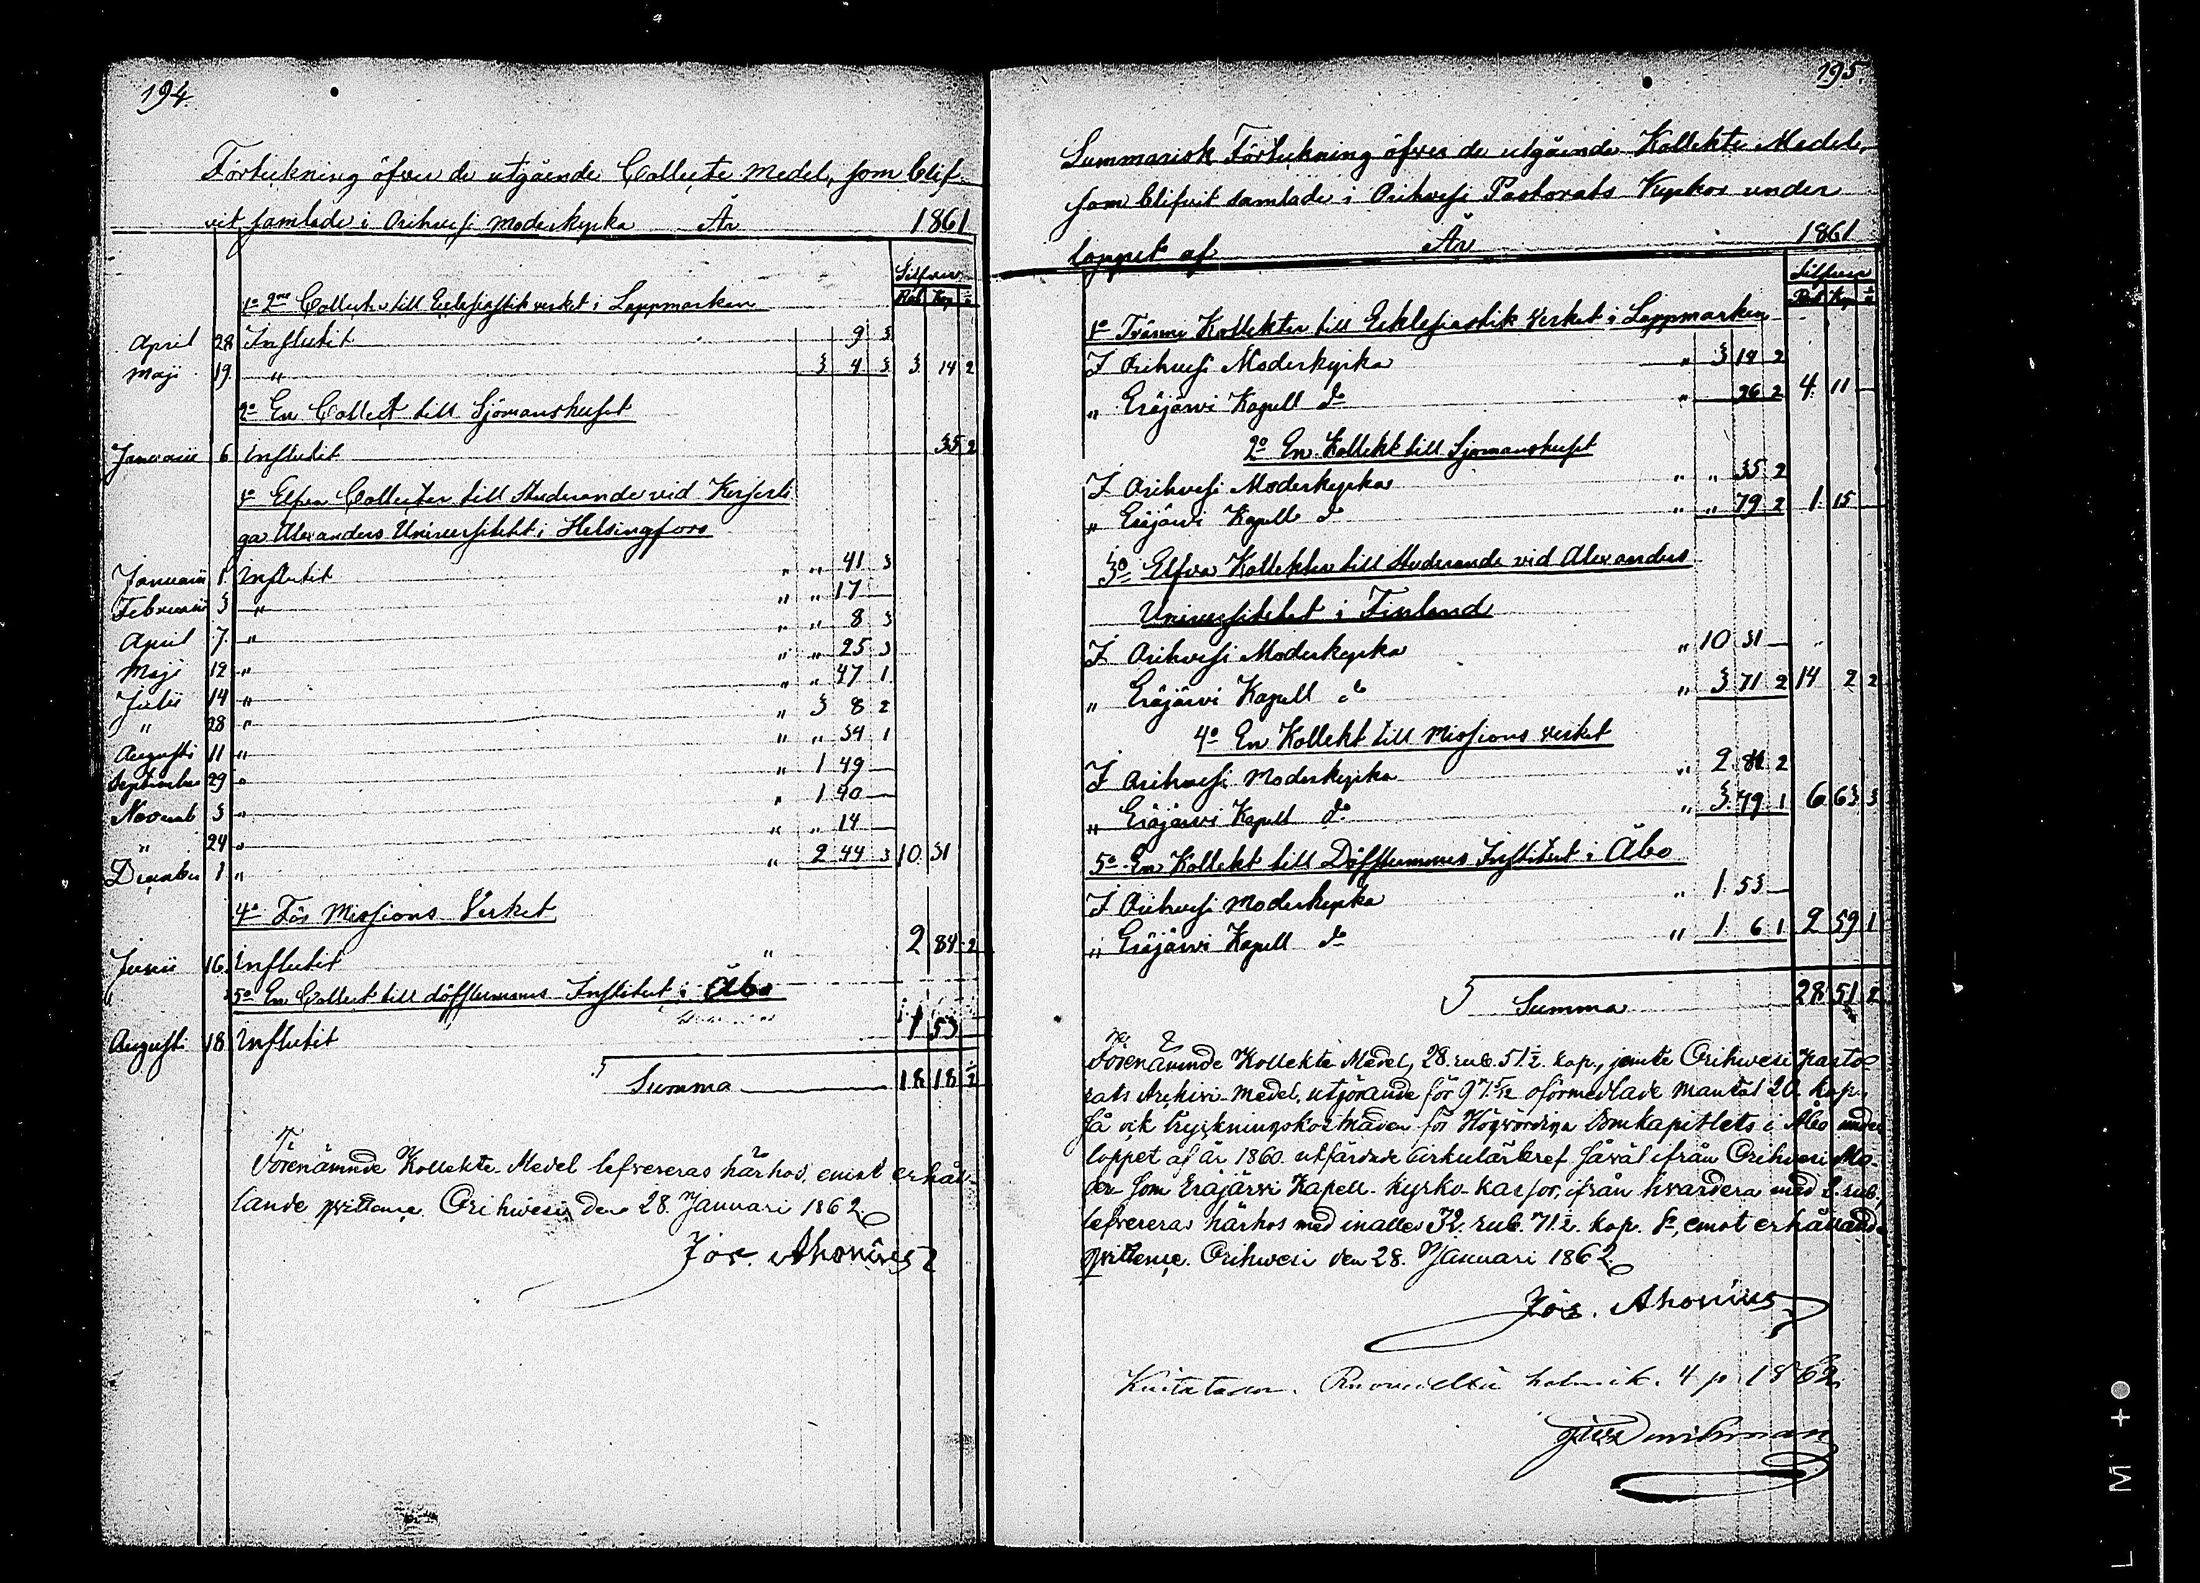 194.
Förteckning öfver de utgående Collecte Medel, som blif-
vit samlade i Orihvesi Moderkyrka År 1861
Silfver
Rub Kop ¼
1o 2ne Collecter till Ecclesiastik verket i Lappmarken
April 28 Influtit 9 3
Maji 19 " 3 4 3 3 14 2
2o En Collect till Sjömanshuset
Januarii 6 Influtit 35 2
3o Elfva Collecter till Studerande vid Kejserli
ga Alexanders Universitetet i Helsingfors
Januarii 1 Influtit " " 41 3
Februarii 3 " " " 17 —
April 7 " " " 8 3
Maji 12 " " " 25 3
Julii 14 " " " 47 1
" 28 " " 3 8 2
Augusti 11 " " " 34 1
September 29 " " 1 49 —
Novemb 3 " " 1 40 —
" 24 " " " 14 —
December 1 " " 2 44 3 10 31
4o För Missions Verket
Junii 16 Influtit " 2 84 2
5o En Collect till döfstummes Institut i Åbo
Augusti 18 Influtit 1 53 —
Summa 18 18 ½
Förenämnde Kollekte Medel lefvereras härhos, emot erhål-
lande qvittence. Orihwesi den 28. Januari 1862.
Jos. Ahonius
195.
Summarisk Förteckning öfver de utgående Kollekte Medel,
som blifvit samlade i Orihvesi Pastorats Kyrkor under
loppet af År 1861
Silfver
Rub Kop ¼
1o Tvänne Kollekter till Ecklesiastik Verket i Lappmarken
I Orihvesi Moderkyrka " 3 14 2
" Eräjärvi Kapell do " 96 2 4 11 —
2o En Kollekt till Sjömanshuset
I Orihvesi Moderkyrka " " 35 2
" Eräjärvi Kapell do " " 79 2 1 15 —
3o Elfva Kollekter till Studerande vid Alexanders
Universitetet i Finland
I Orihvesi Moderkyrka " 10 31 —
" Eräjärvi Kapell do " 3 71 2 14 2 2
4o En Kollekt till Missions verket
I Orihvesi Moderkyrka " 2 84 2
" Eräjärvi Kapell do " 3 79 1 6 63 3
5o En Kollekt till Döfstummes Institut i Åbo
I Orihvesi Moderkyrka " 1 53 —
" Eräjärvi Kapell do " 1 6 1 2 59 1
Summa 28 51 2
Förenämnde Kollekte Medel, 28. rub. 51½ kop., jemte Orihwesi Pasto-
rats Arkivi-medel, utgörande för 97 5/12 oförmedlade mantal 20. kop.
så ock tryckningskostnaden för Högvördiga Domkapitlets i Åbo under
loppet af år 1860. utfärdade Cirkulärbref såväl ifrån Orihvesi Mo-
der- som Eräjärvi Kapell-kyrko-kassor, ifrån hvardera med 2. rub.,
lefvereras härhos med inalles 32. rub. 71½ kop. Sr, emot erhållande
qvittence. Orihwesi den 28. Januari 1862.
Jos. Ahonius
helmik. 4 p. 1862.